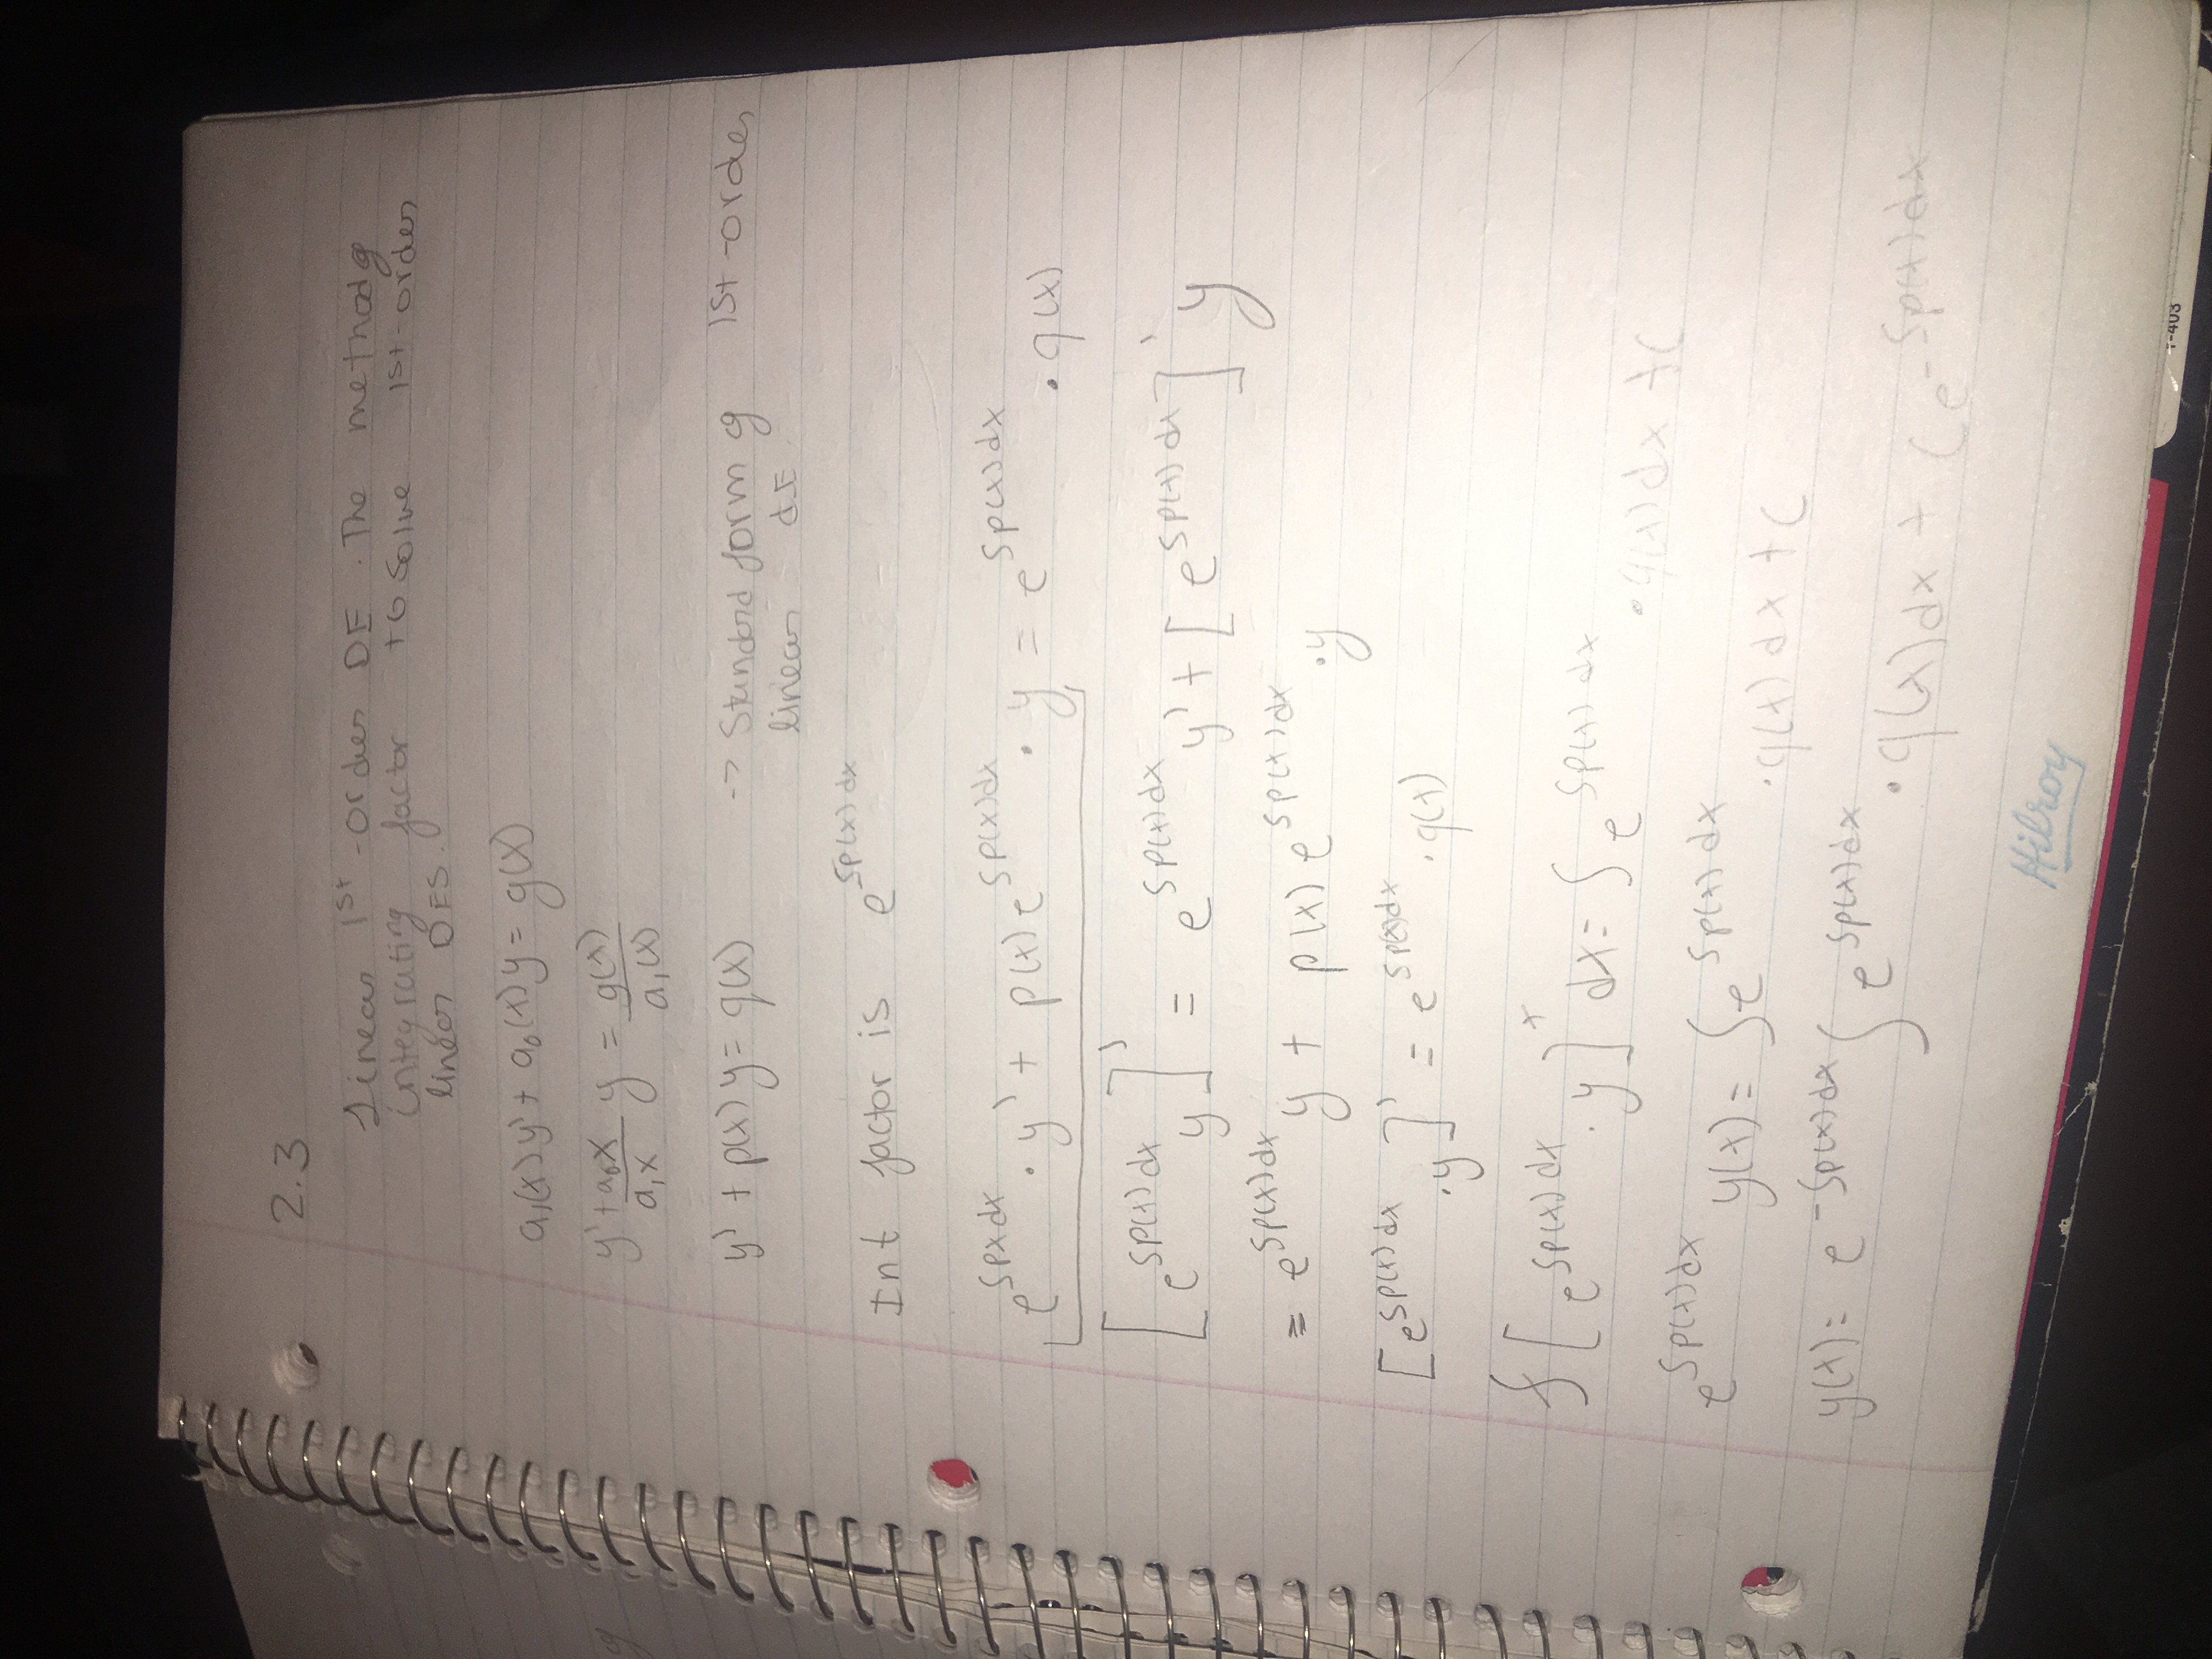 2.3
Linear 1st-order DE. The method of
integrating factor to solve 1st-order
linear DES.
a₁(x)y' + a₀(x)y = g(x)
y' + a₀x/a₁x y = g(x)/a₁(x)
y' + p(x)y = q(x) -> Standard form of 1st-order
linear d.E
Int factor is e^∫p(x)dx
e^∫pxdx · y' + p(x)e^∫p(x)dx · y = e^∫p(x)dx · q(x)
[e^∫p(x)dx y]' = e^∫p(x)dx y' + [e^∫p(x)dx]' y
= e^∫p(x)dx y + p(x)e^∫p(x)dx · y
[e^∫p(x)dx · y]' = e^∫p(x)dx · q(x)
∫[e^∫p(x)dx · y] dx = ∫e^∫p(x)dx · q(x)dx + C
e^∫p(x)dx y(x) = ∫e^∫p(x)dx · q(x)dx + C
y(x) = e^-∫p(x)dx ∫e^∫p(x)dx · q(x)dx + Ce^-∫p(x)dx
Hilroy